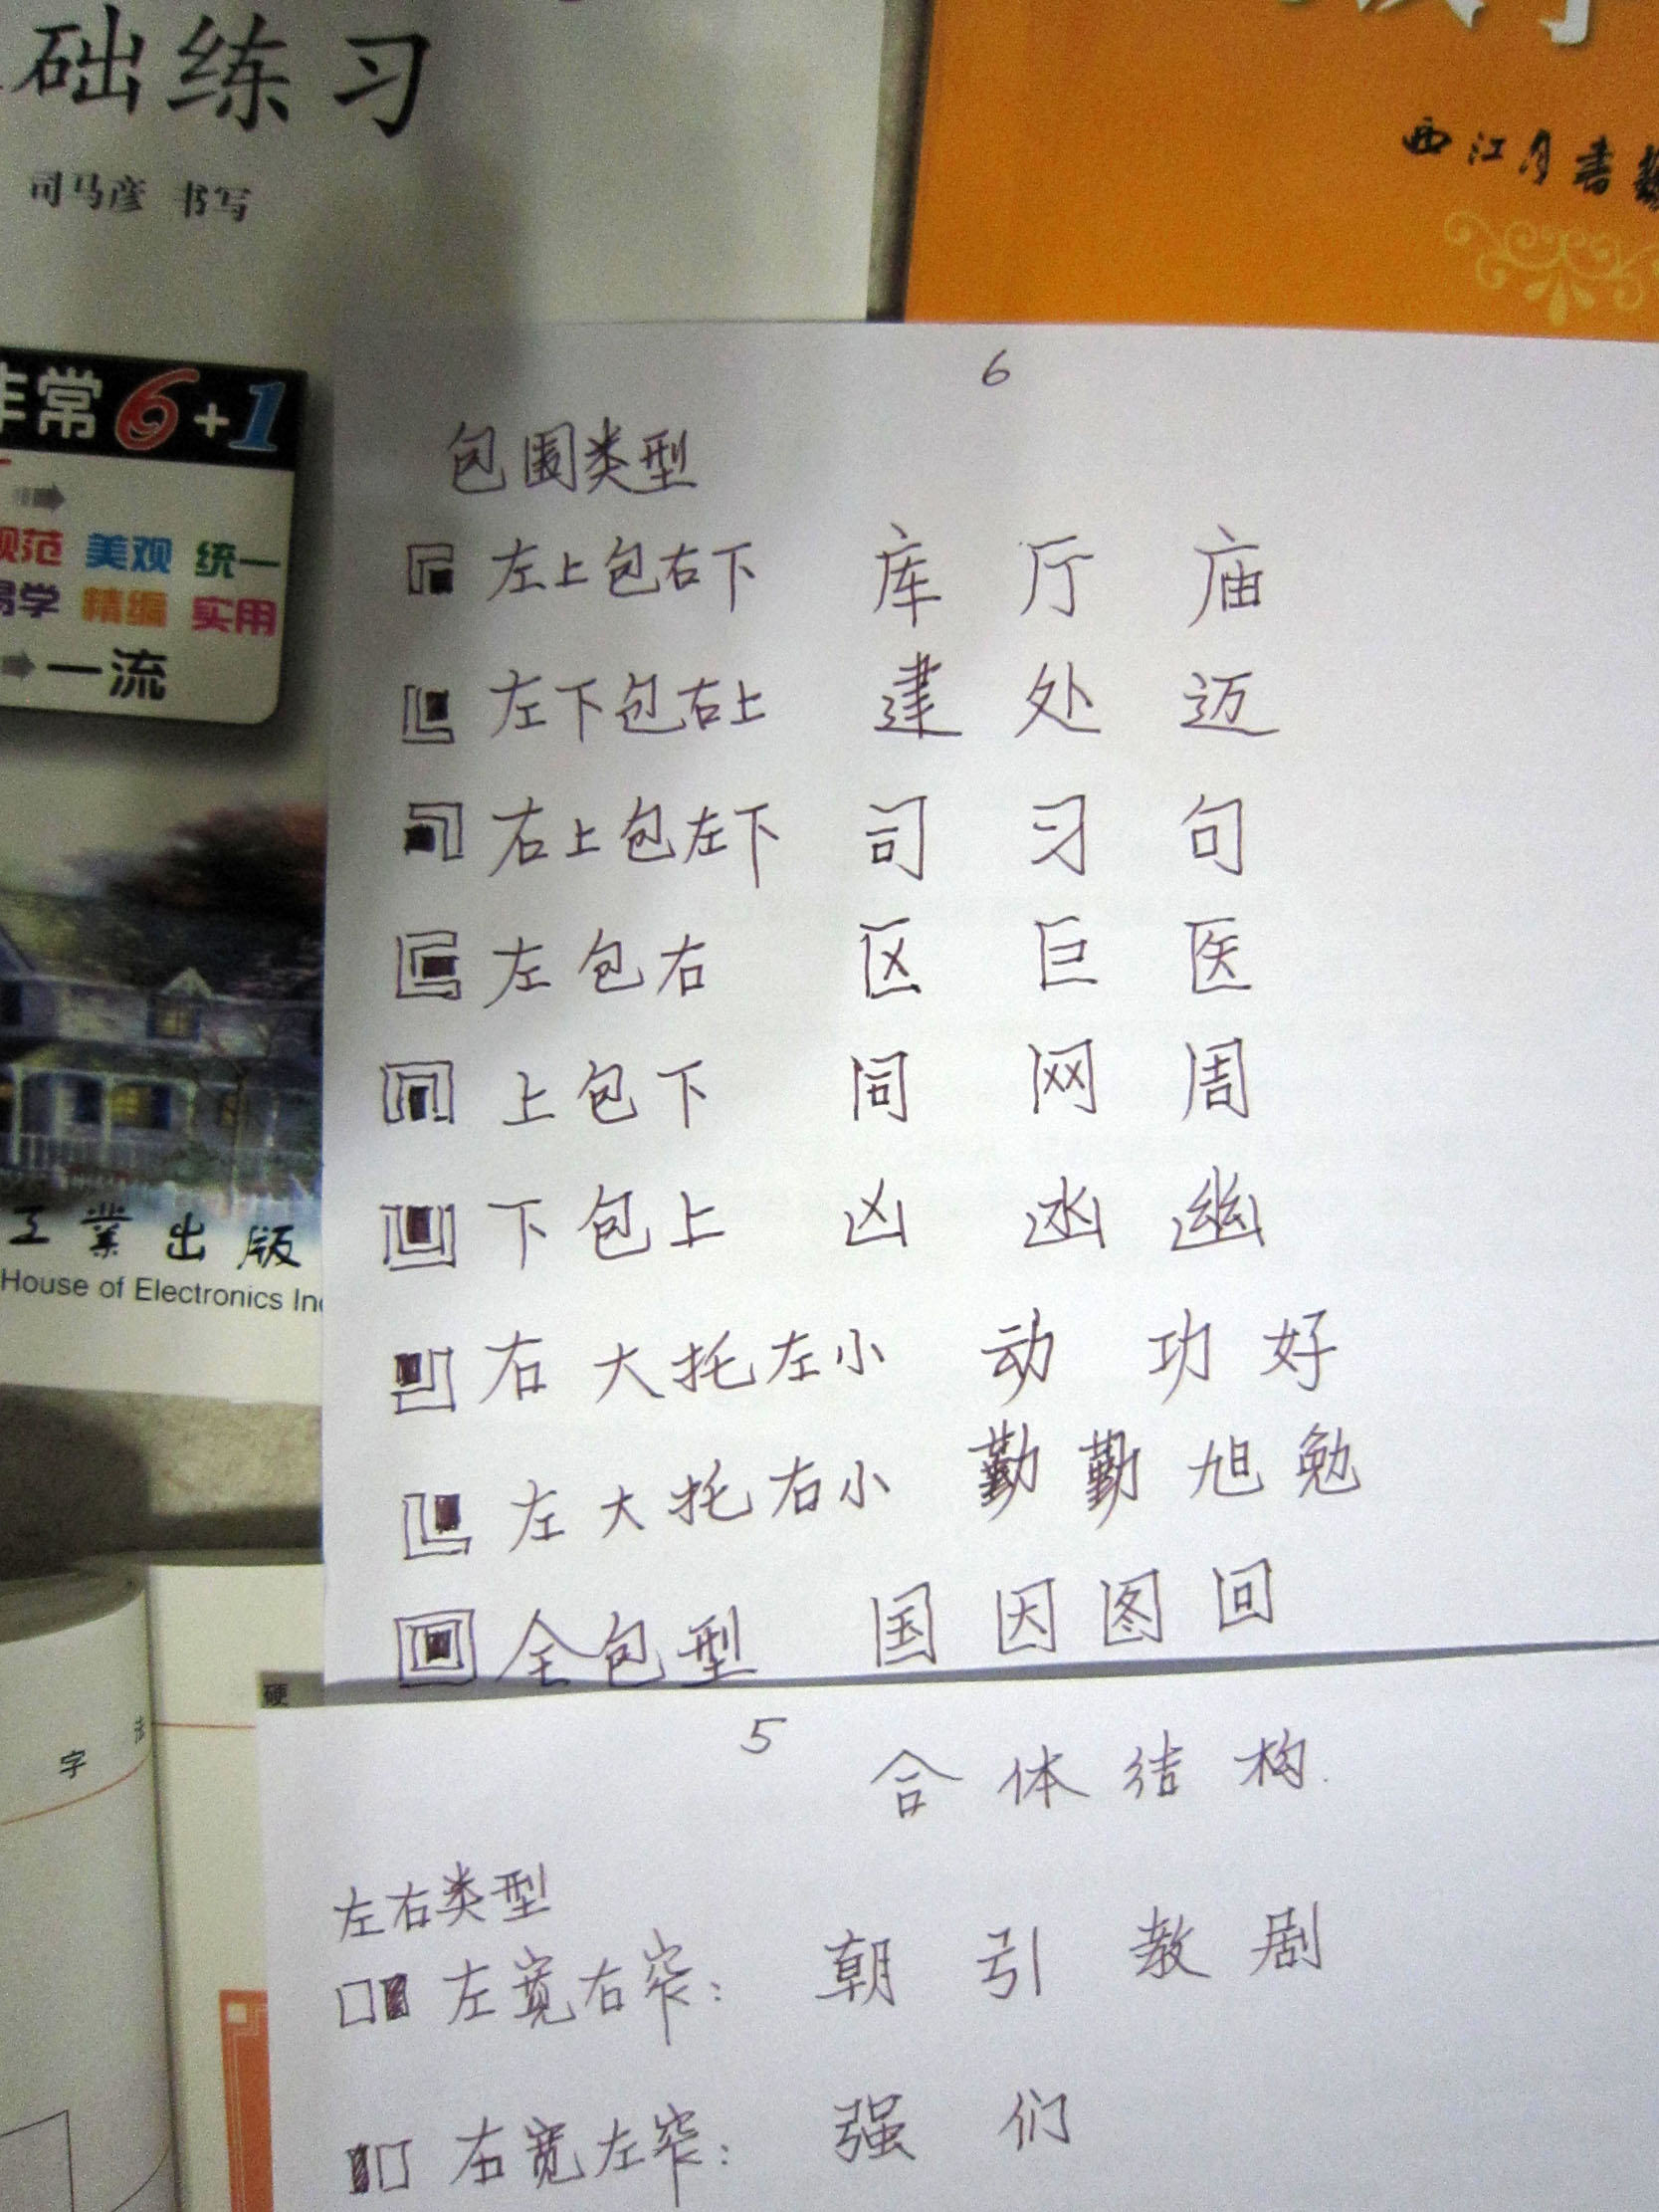 础练习
司马彦 书写
西江月书
非常6+1
规范 美观 统一
易学 精编 实用
一流
工業出版
House of Electronics Ind
6
包围类型
左上包右下 库 厅 庙
左下包右上 建 处 迈
右上包左下 司 习 句
左包右 区 巨 医
上包下 同 网 周
下包上 凶 函 幽
右大托左小 动 功 好
左大托右小 勤 勤 旭 勉
全包型 国 因 图 回
硬
字
5
合体结构
左右类型
左宽右窄: 朝 引 教 剧
右宽左窄: 强 们